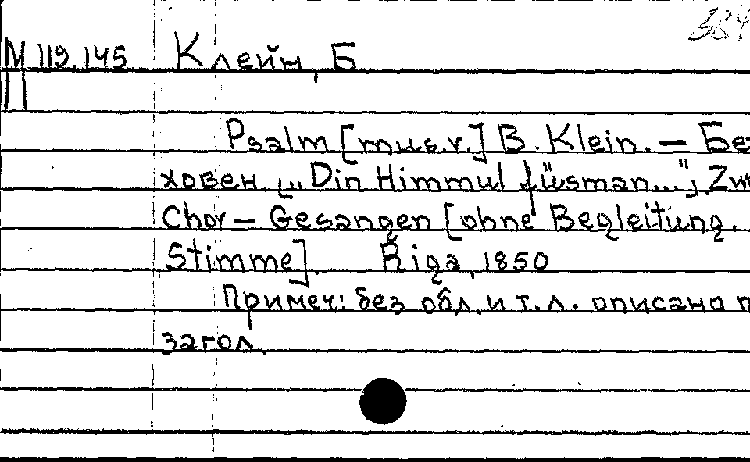 384
М 119.145 Клейн, Б
Psalm [mus.v.] B. Klein. — Бе
ховен „Din Himmul füsman..."; Zwe
Chor — Gesangen [ohne Begleitung.
Stimme]. Riga, 1850
Примеч: без обл. и т.л. описана п
загол.